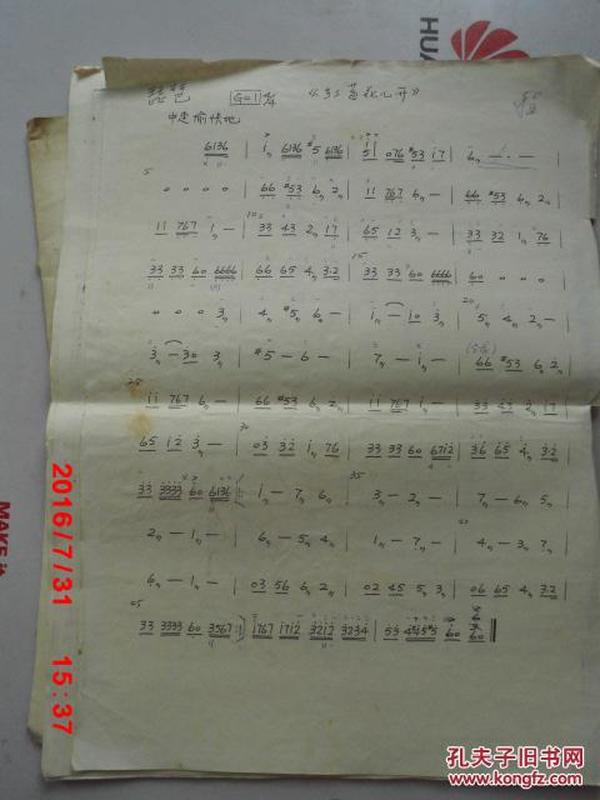 HUA
琵琶 G=1 4/4 《 花儿开》
中速 愉快地
6136 | i 6136 #5 6136 | 5 i 076 #53 i7 | 6 - · -
5
0 0 0 0 | 66 #53 6 2 | 11 767 6 - | 66 #53 6 2
11 767 1 - | 33 43 2 17 | 65 12 3 - | 33 32 1 76
15
33 33 60 6666 | 66 65 4 3·2 | 33 33 60 6666 | 60 0 0 0
0 0 0 3 | 4 #5 6 - | i - i0 3 | 5 4 2 -
3 - 30 3 | #5 - 6 - | 7 - i - | 66 #53 6 2
25
11 767 6 - | 66 #53 6 2 | 11 767 1 - | 33 43 2 17
65 12 3 - | 03 32 i 76 | 33 33 60 6712 | 36 65 4 3·2
35
33 3333 60 6136 | 1 - 7 6 | 3 - 2 - | 7 - 6 5
2 - 1 - | 6 - 5 4 | 1 - 7 - | 4 - 3 7
6 - 1 - | 03 56 6 2 | 02 45 5 3 | 06 65 4 3·2
45
33 3333 60 3567 | 1767 1712 3212 3234 | 53 60 60
MAKE
2016/7/31 15:37
孔夫子旧书网
www.kongfz.com